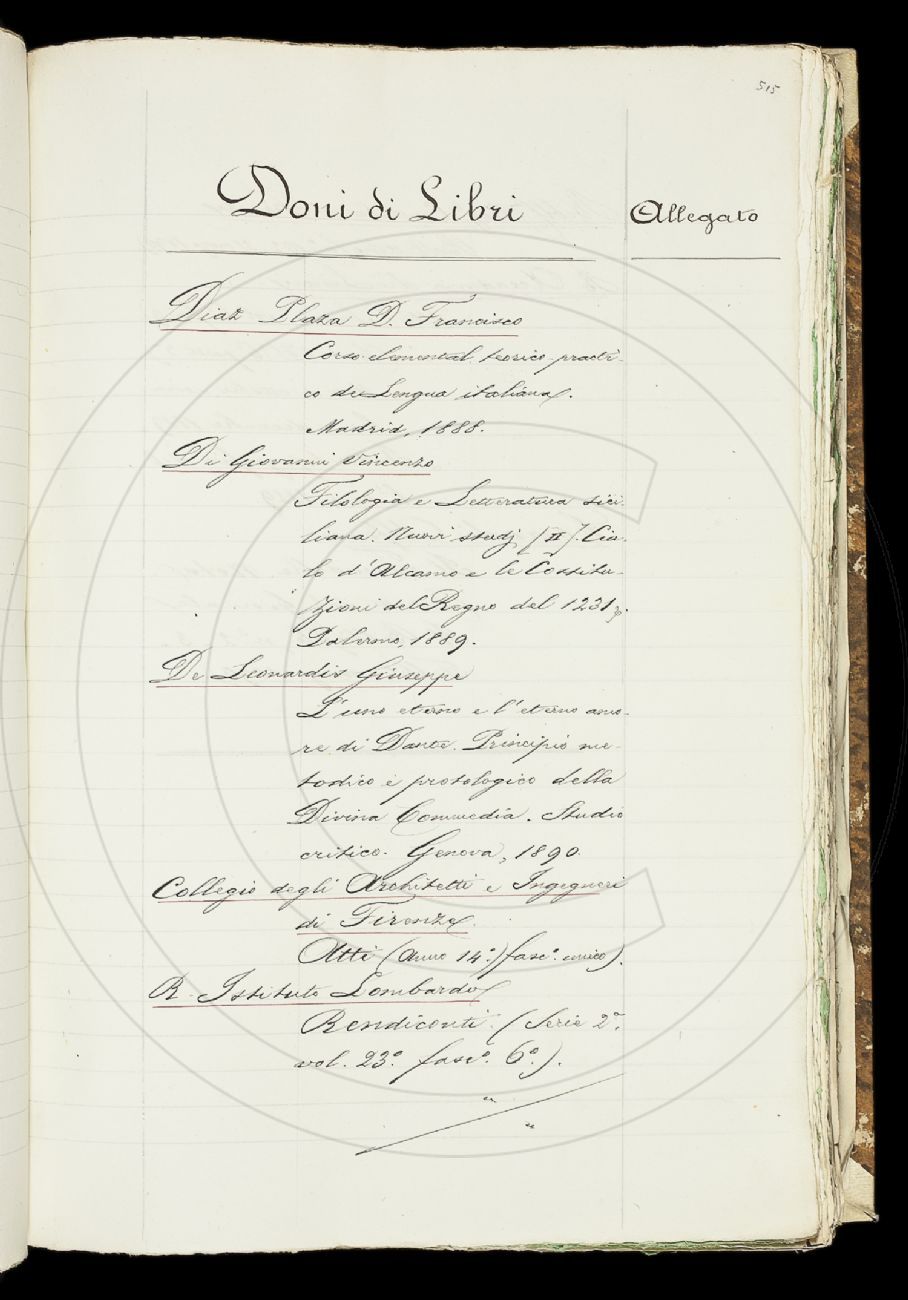 515
Doni di Libri
Allegato
Diaz Plaza D. Francisco
Corso elemental teorico-practi-
co de Lengua italiana.
Madrid, 1888.
Di Giovanni Vincenzo
Filologia e Letteratura sici-
liana. Nuovi studj [II]. Ciu-
lo d'Alcamo e le Costitu-
zioni del Regno del 1231.
Palermo, 1889.
De Leonardis Giuseppe
L'uno eterno e l'eterno amo-
re di Dante. Principio me-
todico e protologico della
Divina Commedia. Studio
critico. Genova, 1890.
Collegio degli Architetti e Ingegneri
di Firenze.
Atti (Anno 14º.) fascº. unico).
R. Istituto Lombardo
Rendiconti. (Serie 2ª.
vol. 23º. fascº. 6º.).